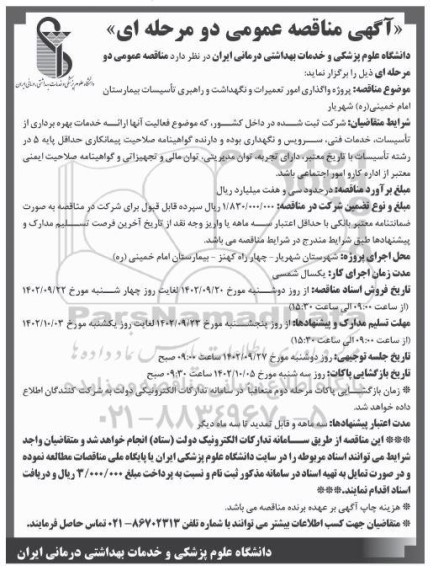 «آگهی مناقصه عمومی دو مرحله ای»
دانشگاه علوم پزشکی و خدمات بهداشتی درمانی ایران
دانشگاه علوم پزشکی و خدمات بهداشتی درمانی ایران در نظر دارد مناقصه عمومی دو
مرحله ای ذیل را برگزار نماید:
موضوع مناقصه: پروژه واگذاری امور تعمیرات و نگهداشت و راهبری تأسیسات بیمارستان
امام خمینی(ره) شهریار
شرایط متقاضیان: شرکت ثبت شده در داخل کشور، که موضوع فعالیت آنها ارائه خدمات بهره برداری از
تأسیسات، خدمات فنی، سرویس و نگهداری بوده و دارنده گواهینامه صلاحیت پیمانکاری حداقل پایه ۵ در
رشته تأسیسات با تاریخ معتبر، دارای تجربه، توان مدیریتی، توان مالی و تجهیزاتی و گواهینامه صلاحیت ایمنی
معتبر از اداره کار و امور اجتماعی باشد.
مبلغ برآورد مناقصه: در حدود سی و هفت میلیارد ریال
مبلغ و نوع تضمین شرکت در مناقصه: ۱/۸۳۰/۰۰۰/۰۰۰ ریال سپرده قابل قبول برای شرکت در مناقصه به صورت
ضمانتنامه معتبر بانکی با حداقل اعتبار سه ماهه یا واریز وجه نقد از تاریخ آخرین فرصت تسلیم مدارک و
پیشنهادها طبق شرایط مندرج در شرایط مناقصه می باشد.
محل اجرای پروژه: شهرستان شهریار - چهار راه کهنز - بیمارستان امام خمینی (ره)
مدت زمان اجرای کار: یکسال شمسی
تاریخ فروش اسناد مناقصه: از روز دوشنبه مورخ ۱۴۰۲/۰۹/۲۰ لغایت روز چهار شنبه مورخ ۱۴۰۲/۰۹/۲۲
(از ساعت ۰۹:۰۰ الی ساعت ۱۵:۳۰)
مهلت تسلیم مدارک و پیشنهادها: از روز پنجشنبه مورخ ۱۴۰۲/۰۹/۲۳ لغایت روز یکشنبه مورخ ۱۴۰۲/۱۰/۰۳
(از ساعت ۰۹:۰۰ الی ساعت ۱۵:۳۰)
تاریخ جلسه توجیهی: روز دوشنبه مورخ ۱۴۰۲/۰۹/۲۷ ساعت ۰۹:۰۰ صبح
تاریخ بازگشایی پاکات: روز سه شنبه مورخ ۱۴۰۲/۱۰/۰۵ ساعت ۰۹:۳۰ صبح
※ زمان بازگشایی پاکات مرحله دوم متعاقباً در سامانه تدارکات الکترونیکی دولت به شرکت کنندگان اطلاع
داده خواهد شد.
مدت اعتبار پیشنهادها: سه ماهه و قابل تمدید تا سه ماه دیگر
※※※ این مناقصه از طریق سامانه تدارکات الکترونیک دولت (ستاد) انجام خواهد شد و متقاضیان واجد
شرایط می توانند اسناد مربوطه را در سایت دانشگاه علوم پزشکی ایران یا پایگاه ملی مناقصات مطالعه نموده
و در صورت تمایل به تهیه اسناد در سامانه مذکور ثبت نام و نسبت به پرداخت مبلغ ۳/۰۰۰/۰۰۰ ریال و دریافت
اسناد اقدام نمایند.※※※
※ هزینه چاپ آگهی بر عهده برنده مناقصه می باشد.
※ متقاضیان جهت کسب اطلاعات بیشتر می توانند با شماره تلفن ۸۶۷۰۲۳۱۳-۰۲۱ تماس حاصل فرمایند.
دانشگاه علوم پزشکی و خدمات بهداشتی درمانی ایران
ParsNamadData
۰۲۱-۸۸۳۴۹۶۷۰-۵